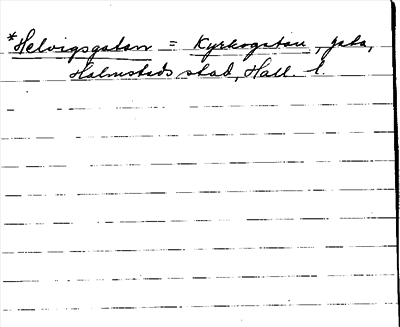 *Helvigsgatan = Kyrkogatan, gata,
Halmstads stad, Hall. l.